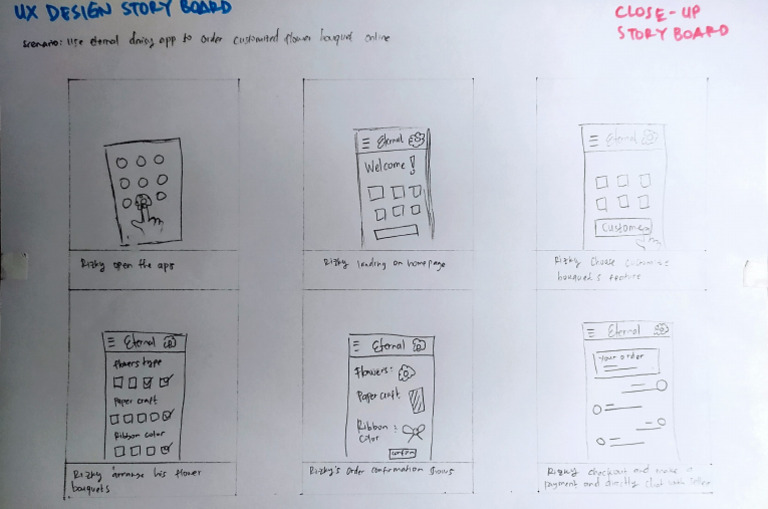 UX DESIGN STORY BOARD
CLOSE-UP
STORY BOARD
scenario: Use eternal app to order customized flower bouquet online
Rizky open the aps
Eternal
Welcome!
Rizky landing on homepage
Eternal
Custome
Rizky choose customize
bouquet's feature
Eternal
flowers type
Paper craft
Ribbon color
Rizky arrange his flower
bouquets
Eternal
Flowers:
Paper craft
Ribbon :
color
confirm
Rizky's order confirmation
Eternal
Your order
Rizky checkout and make a
payment and directly chat with seller